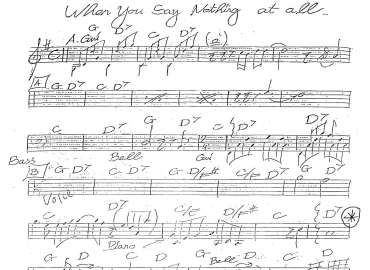 When You Say Nothing at all
A. Guit G D7 C D7 (G)
A G D7 C D7
C D7 G D7 C D7 D7
Bass Bell Guit
B G D7 C D7 G D/F# C D7 G D7
Voice
C D7 C/E D/F# C D7
Piano
C D C D G Bell D C D